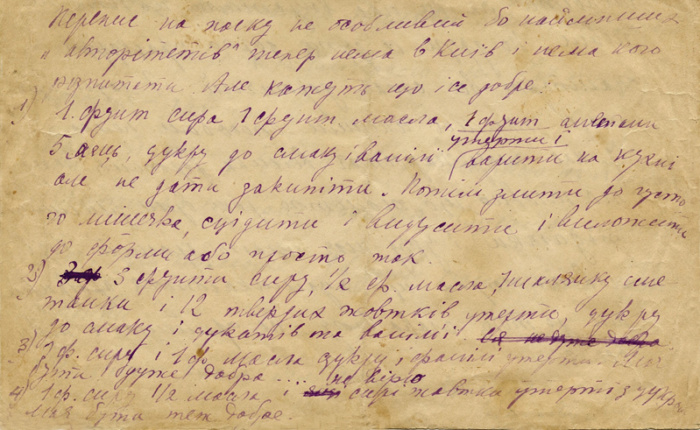 Перепис на паску не особливий бо найліпших
„авторітетів“ тепер нема в Київі і нема кого
розпитати. Але кажуть що і се добре:
1) 1 фунт сира, 1 фунт масла, 1 фунт сметани
утерти і
5 яєць, цукру до смаку і ванілі варити на кухні
але не дати закипіти. Потім злити до густо
го мішечка, сцідити і видусити і виложити
до форми або просто так.
2) 3 фунти сиру, 1/2 ф. масла, 1 шклянку сме
танки і 12 твердих жовтків утерти, цукру
до смаку і цукатів та ванілії
3) 1 ф. сиру і 1 ф. масла цукру, ванілі утерти. Має
бути дуже добра .... не вірю
4) 1 ф. сиру 1/2 масла і сирі жовтки утерти з цукром
має бути теж добре.